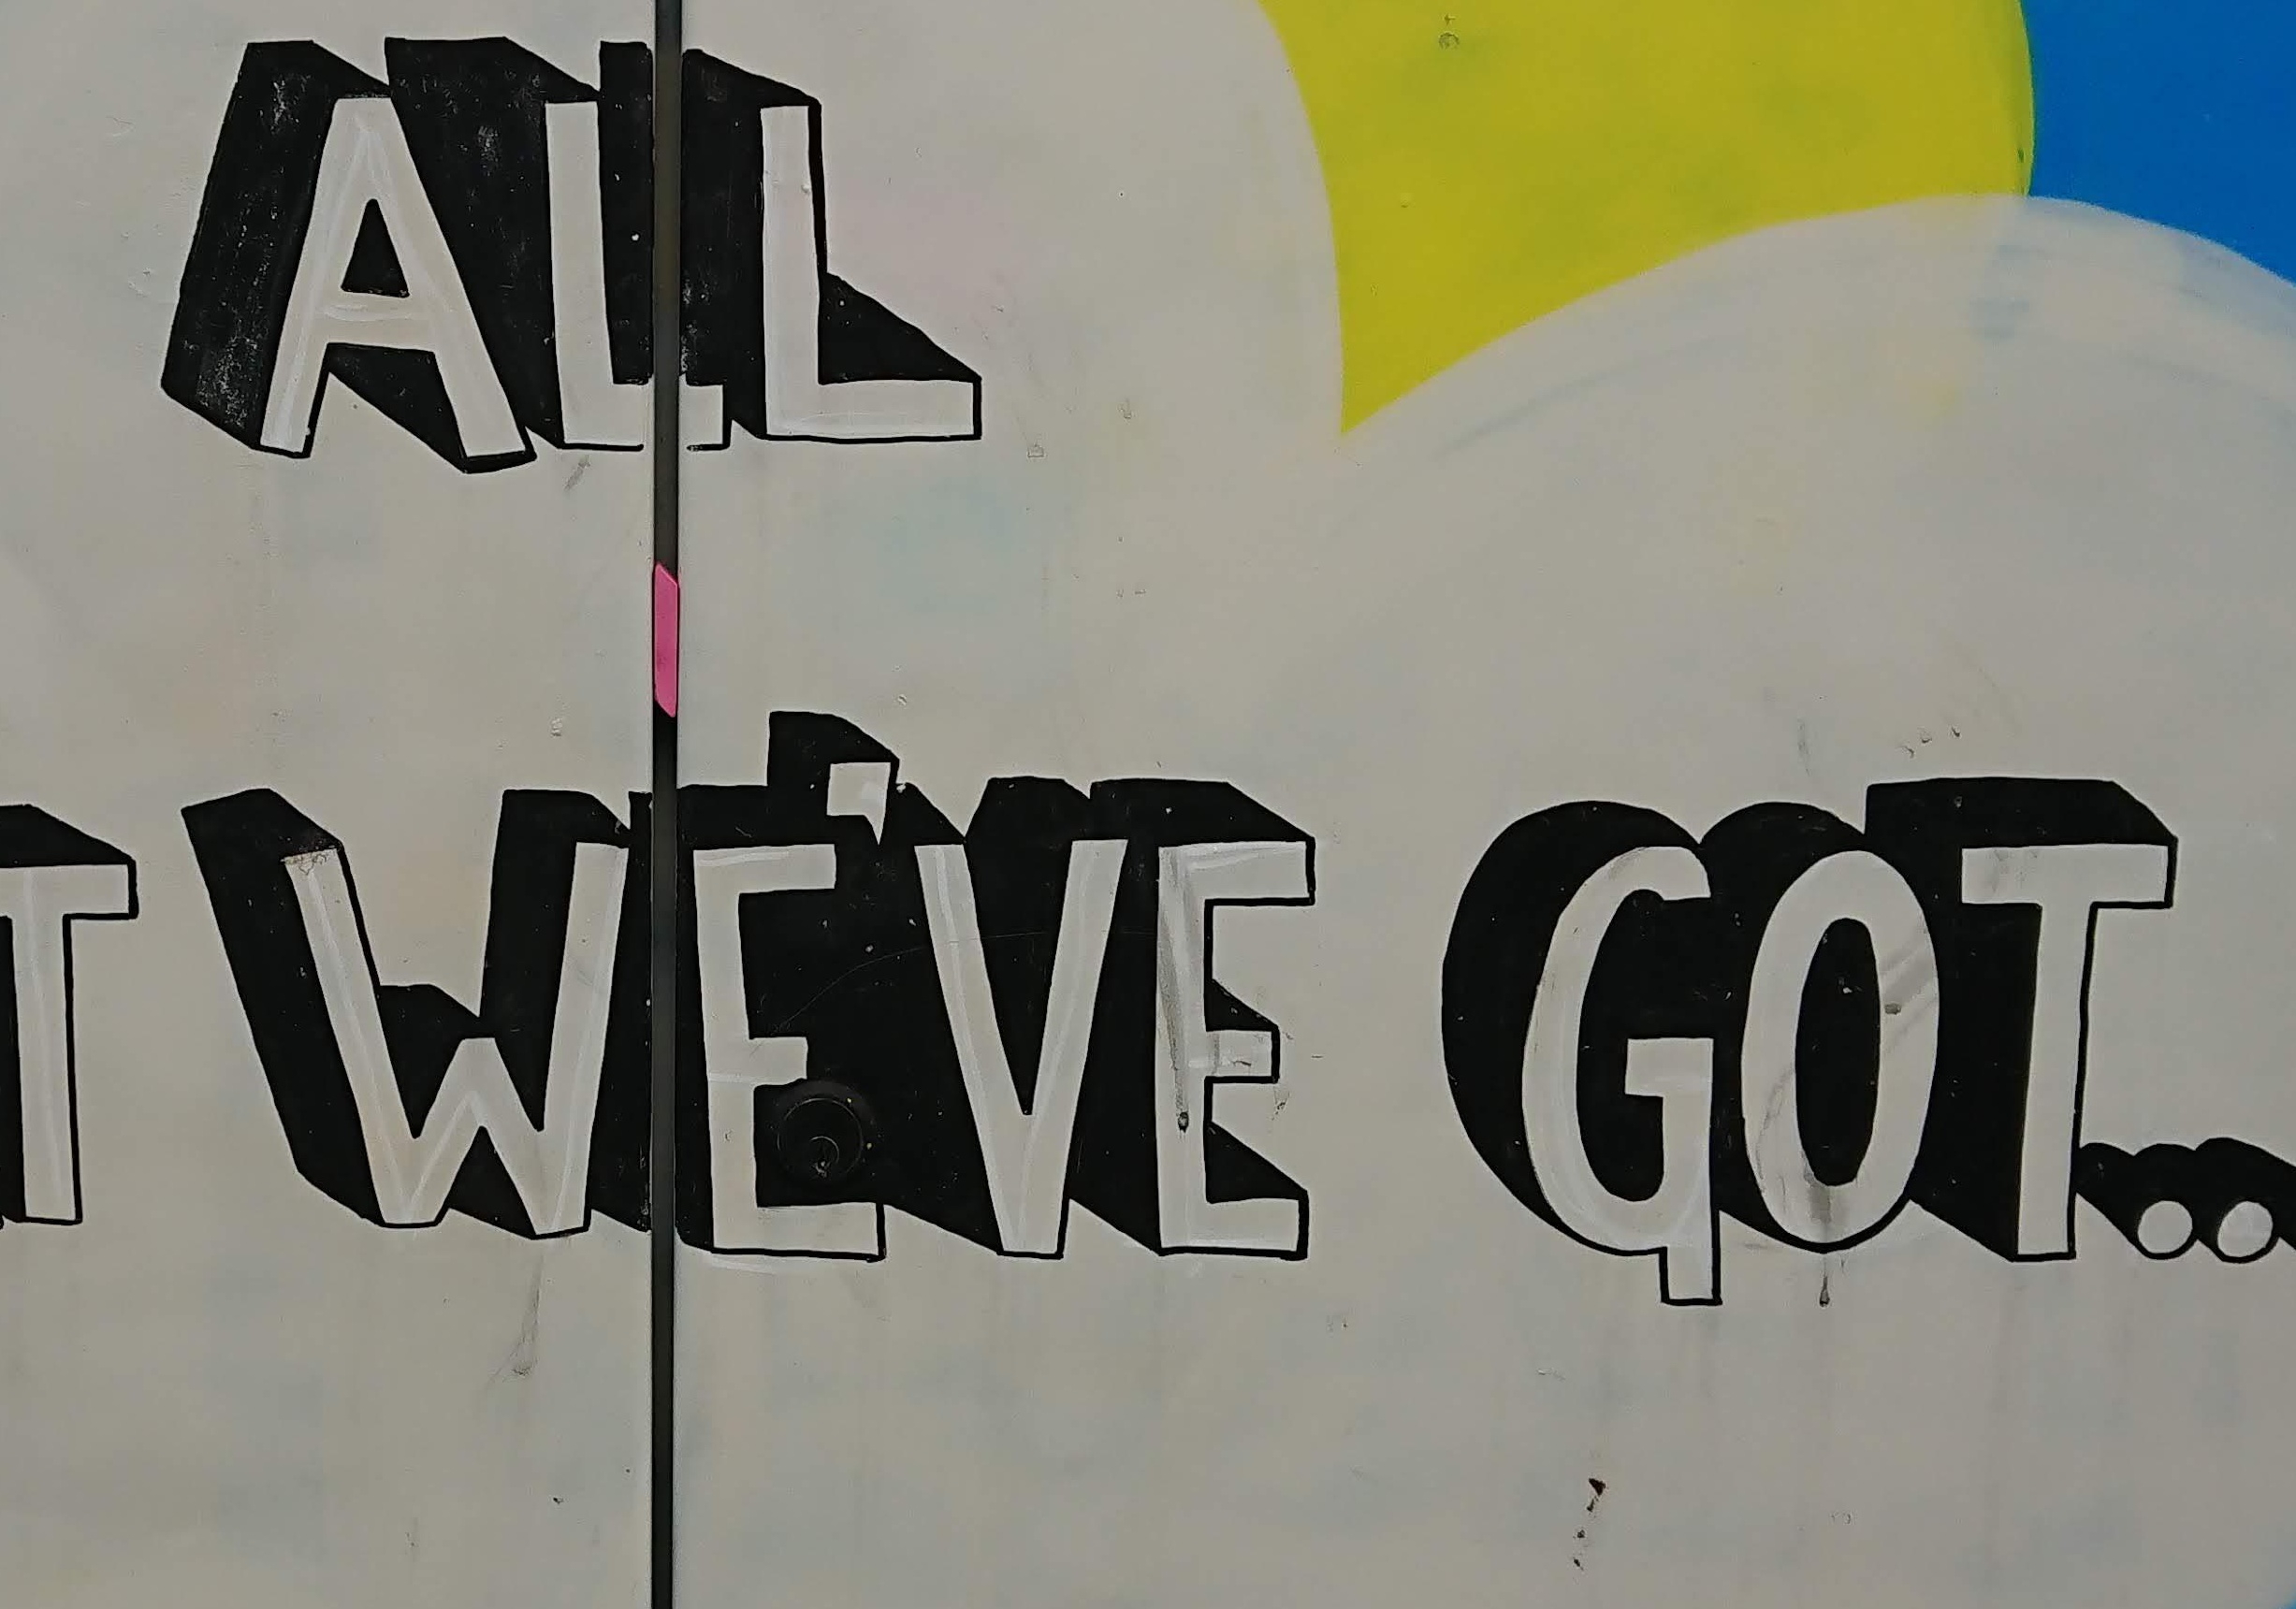 ALL
T WE'VE GOT..